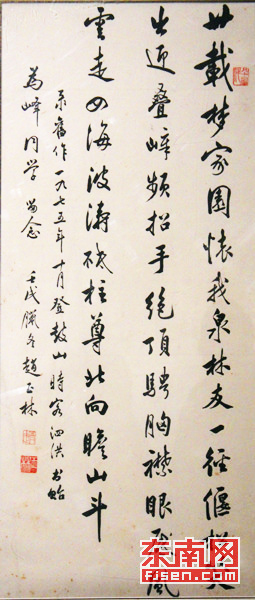 載梦家園懷我泉林友一徑偃松
出迎叠嶂頻招手絶頂騁胸襟眼底風
雲走四海波濤砥柱尊北向瞻山斗
录舊作一九七五年十月登鼓山時客泗洪书贻
為峰同学留念 壬戌臘冬趙玉林
东南网
fjsen.com